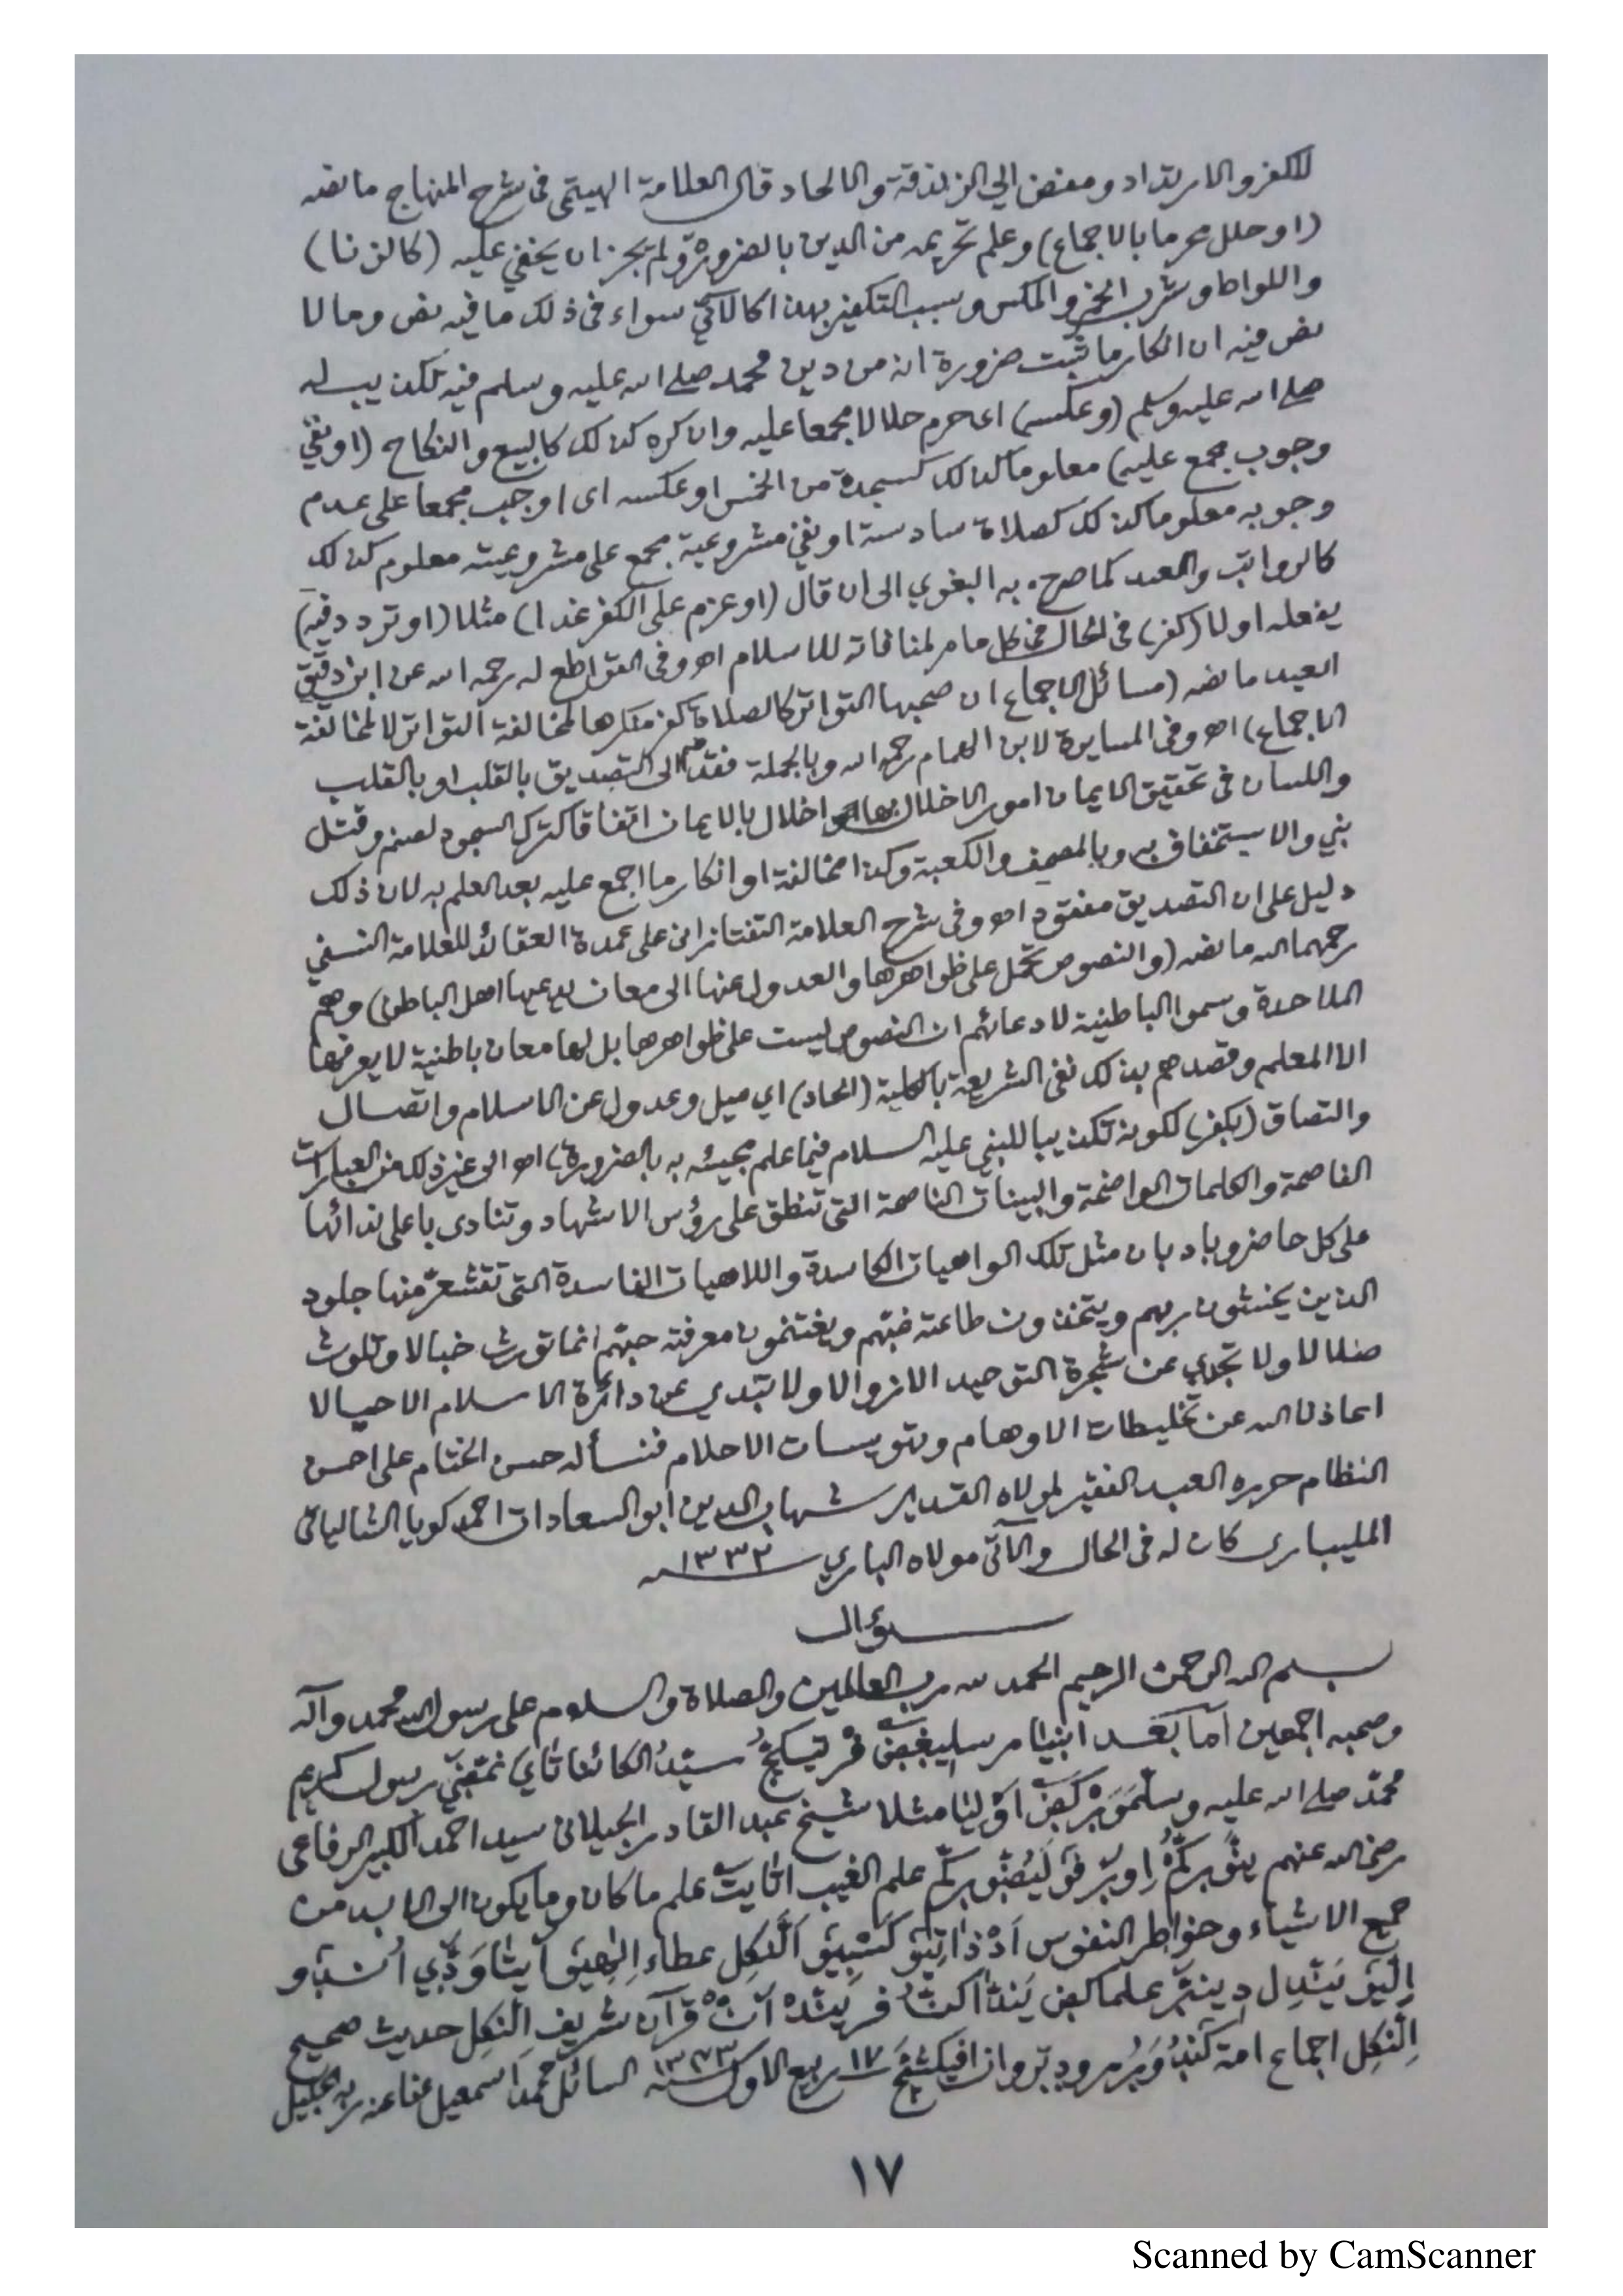 للكفر والارتداد ومفض الى الزندقة والالحاد قال العلامة الهيتمى فى شرح المنهاج ما نصه
(او حلل محرما بالاجماع) وعلم تحريمه من الدين بالضرورة ولم يجز ان يخفى عليه (كالزنا)
واللواط وشرب الخمر والمكس وسبب التكفير بهذا كالآتى سواء فى ذلك ما فيه نص وما لا
نص فيه ان انكار ما ثبت ضرورة انه من دين محمد صلى الله عليه وسلم فيه تكذيب له
صلى الله عليه وسلم (وعكسه) اى حرم حلالا مجمعا عليه وان كره كذلك كالبيع والنكاح (او نفى
وجوب مجمع عليه) معلوما كذلك كسجدة من الخمس او عكسه اى اوجب مجمعا على عدم
وجوبه معلوما كذلك كصلاة سادسة او نفى مشروعية مجمع على مشروعيته معلوم كذلك
كالرواتب والعيد كما صرح به البغوي الى ان قال (او عزم على الكفر غدا) مثلا (او تردد فيه)
يفعله او لا (كفر) فى الحال فى كل ما مر لمنافاته للاسلام اهـ وفى القواطع له رحمه الله عن ابن دقيق
العيد ما نصه (مسائل الاجماع ان صحبها التواتر كالصلاة كفر منكرها لمخالفة التواتر لا لمخالفة
الاجماع) اهـ وفى المسايرة لابن الهمام رحمه الله وبالجملة فقد ضم الى التصديق بالقلب او بالقلب
واللسان فى تحقيق الايمان امور الاخلال بها اخلال بالايمان اتفاقا كترك السجود لصنم وقتل
نبي والاستخفاف به وبالمصحف والكعبة وكذا مخالفة او انكار ما اجمع عليه بعد العلم به لان ذلك
دليل على ان التصديق مفقود اهـ وفى شرح العلامة التفتازانى على عمدة العقائد للعلامة النسفي
رحمهما الله ما نصه (والنصوص تحمل على ظواهرها والعدول عنها الى معان يدعيها اهل الباطن) وهم
الملاحدة وسموا الباطنية لادعائهم ان النصوص ليست على ظواهرها بل لها معان باطنية لا يعرفها
الا المعلم وقصدهم بذلك نفى الشريعة بالكلية (الحاد) اي ميل وعدول عن الاسلام واتصال
والتصاق (بكفر) لكونه تكذيبا للنبي عليه السلام فيما علم مجيئه به بالضرورة) اهـ الى غير ذلك من العبارات
الفاصحة والكلمات الواضحة والبينات الناصحة التى تنطق على رؤس الاشهاد وتنادى باعلى ندائها
على كل حاضر وباد بان مثل تلك الواهيات الكاسدة واللاهيات الفاسدة التى تقشعر منها جلود
الذين يخشون ربهم ويتخذون طاعته ويغتنمون معرفته انما تورث خبالا وتلوث
ضلالا ولا تجدي عن شجرة التوحيد الا نزوالا ولا تبتدي عن دائرة الاسلام الا حيالا
اعاذنا الله عن تخليطات الاوهام وتويسات الاحلام فنسأله حسن الختام على احسن
النظام حرره العبد الفقير لمولاه القدير شهاب الدين ابو السعادات احمد كويا الشالياتى
المليبارى كان له فى الحال والآتى مولاه الباري ١٣٣٢
سؤال
بسم الله الرحمن الرحيم الحمد لله رب العالمين والصلاة والسلام على رسول الله محمد وآله
وصحبه اجمعين اما بعد انبيا سيد الكائنات رسول كريم
محمد صلى الله عليه وسلم مثلا شيخ عبد القادر الجيلانى سيد احمد الكبير الرفاعى
رضى الله عنهم علم الغيب علم ما كان وما يكون الى الابد من
جميع الاشياء وخواطر النفوس عطاء
قرآن شريف حديث صحيح
اجماع امة ١٧ ربيع الاول سنه ١٣٤٣ السائل محمد اسمعيل عفا عنه ربه الجليل
١٧
Scanned by CamScanner